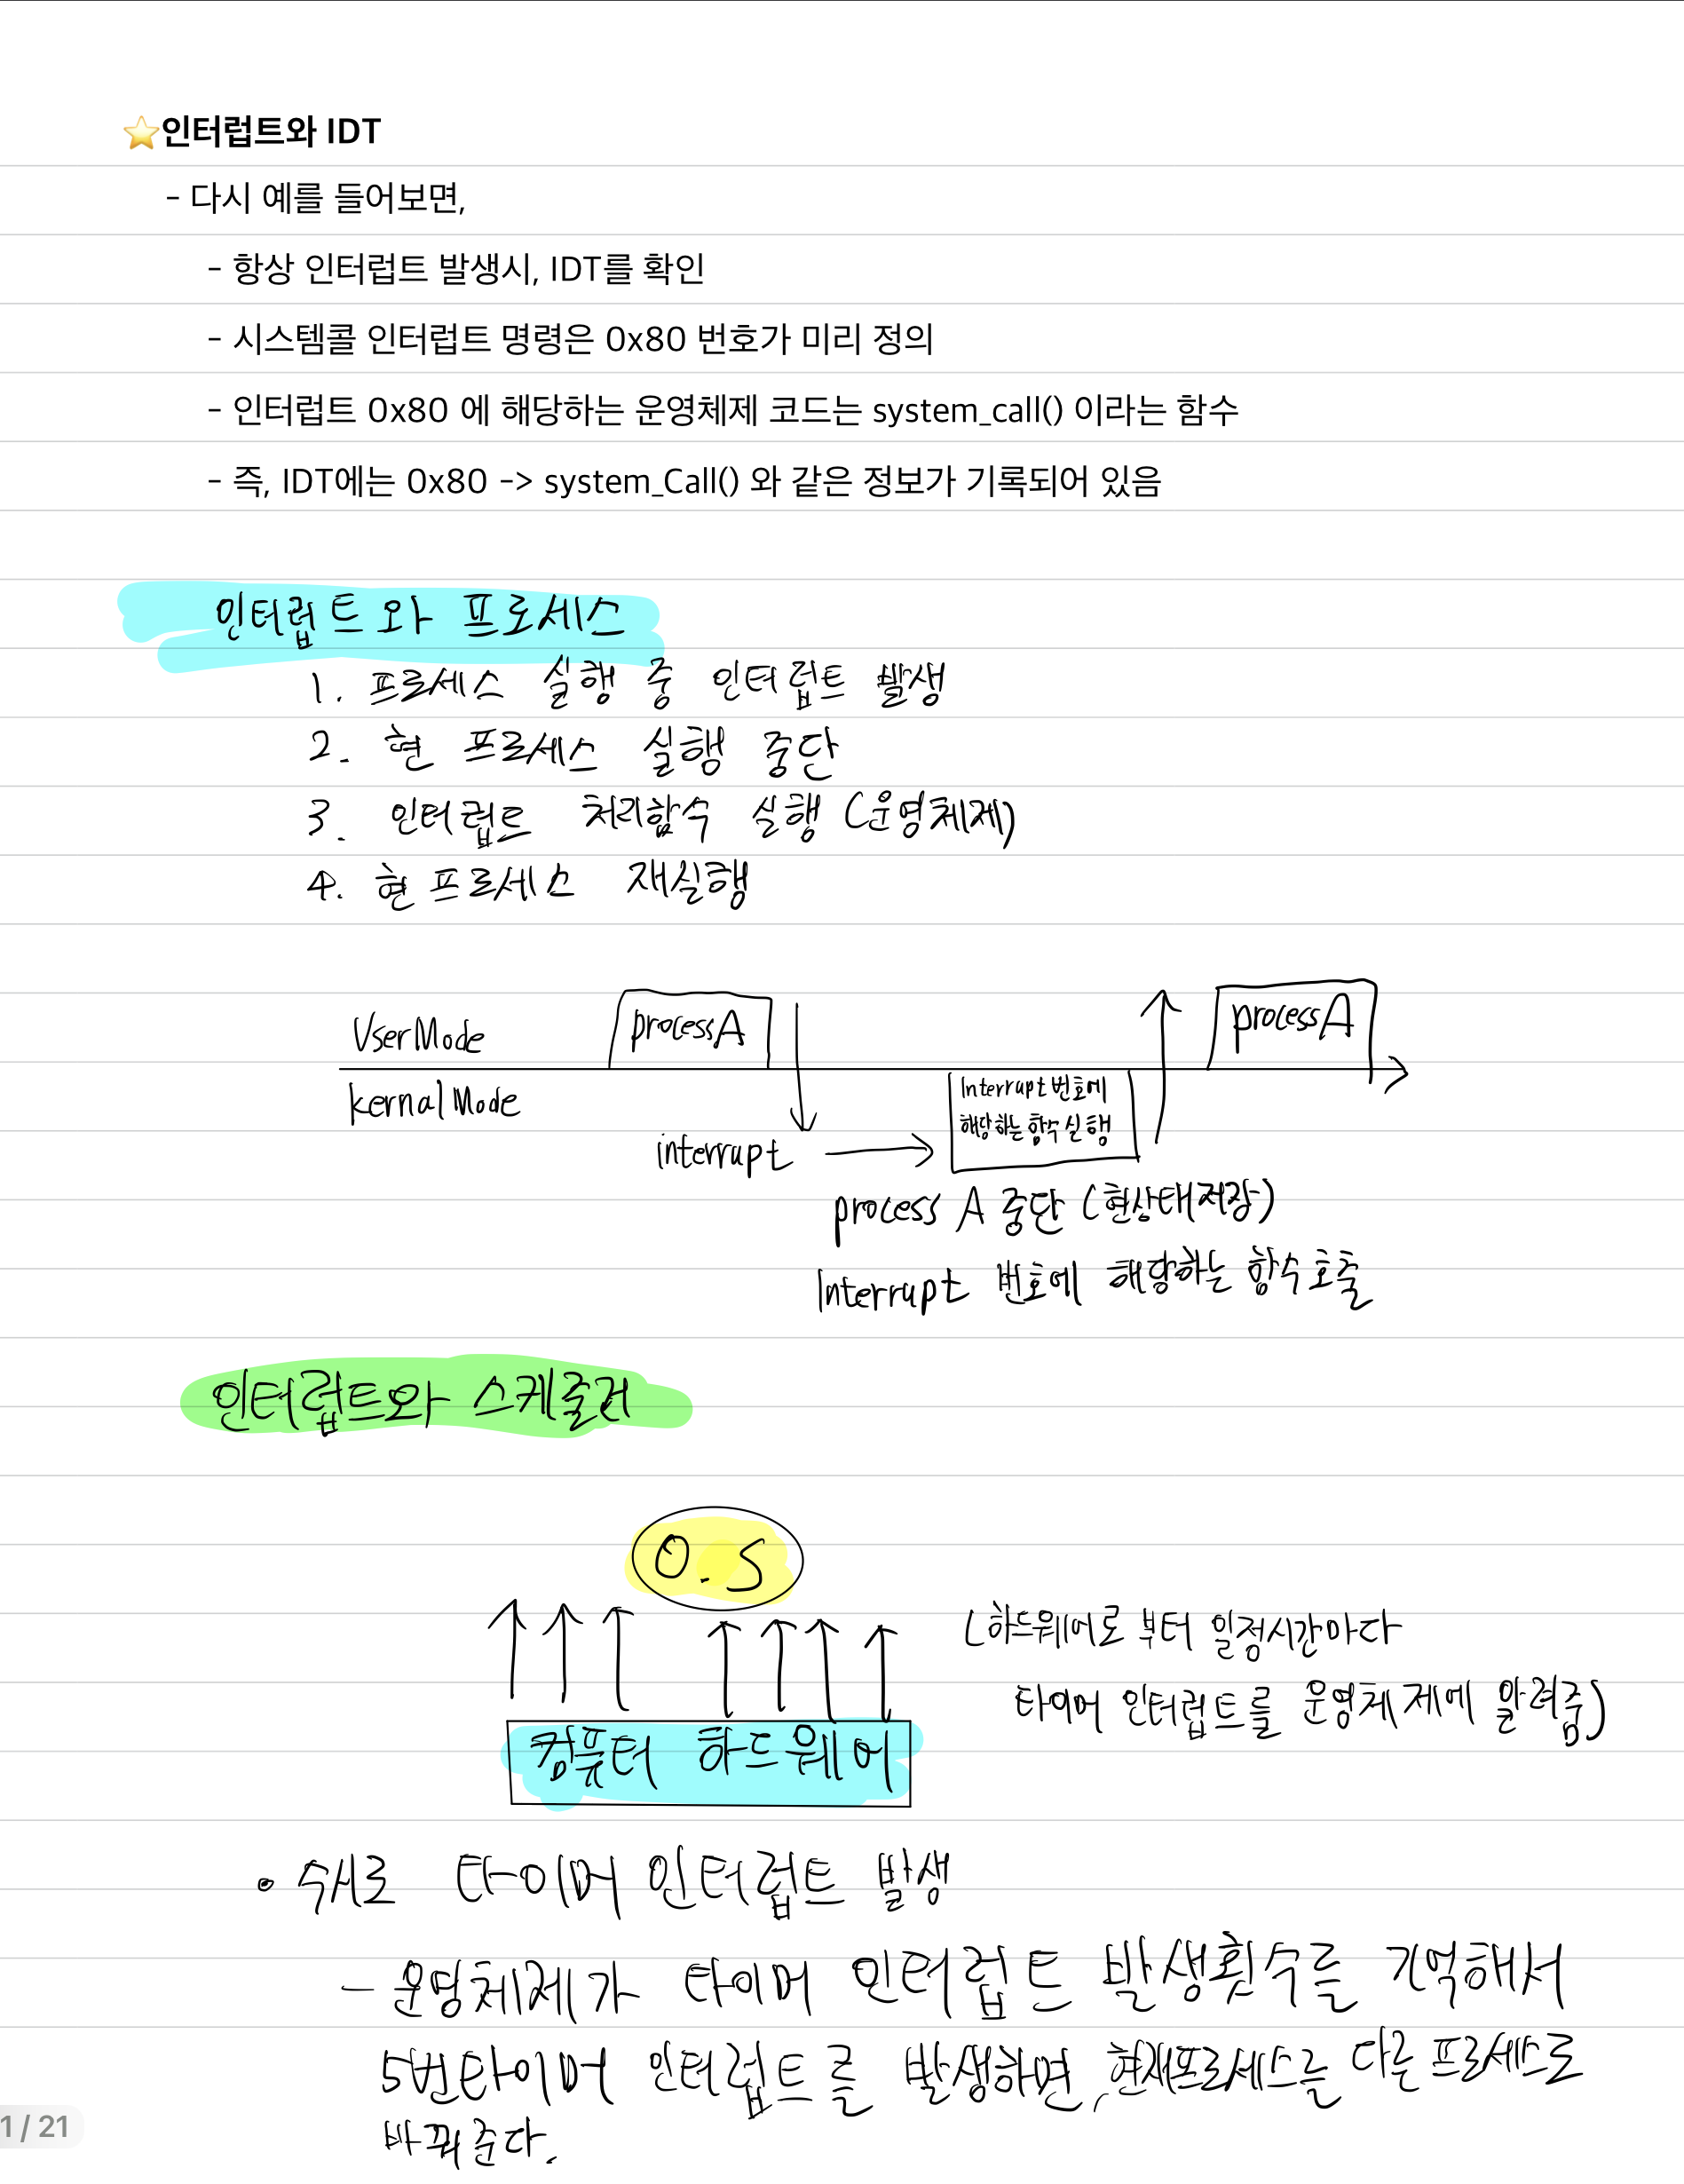 ⭐인터럽트와 IDT
- 다시 예를 들어보면,
- 항상 인터럽트 발생시, IDT를 확인
- 시스템콜 인터럽트 명령은 0x80 번호가 미리 정의
- 인터럽트 0x80 에 해당하는 운영체제 코드는 system_call() 이라는 함수
- 즉, IDT에는 0x80 -> system_Call() 와 같은 정보가 기록되어 있음
인터럽트와 프로세스
1. 프로세스 실행 중 인터럽트 발생
2. 현 프로세스 실행 중단
3. 인터럽트 처리함수 실행 (운영체제)
4. 현 프로세스 재실행
UserMode
processA
processA
kernalMode
Interrupt 번호에
해당하는 함수 실행
interrupt
process A 중단 (현상태저장)
Interrupt 번호에 해당하는 함수 호출
인터럽트와 스케줄러
O.S
(하드웨어로 부터 일정시간마다
타이머 인터럽트를 운영체제에 알려줌)
컴퓨터 하드웨어
• 수시로 타이머 인터럽트 발생
- 운영체제가 타이머 인터럽트 발생횟수를 기억해서
5번타이머 인터럽트를 발생하면, 현재프로세스를 다른 프로세스로
바꿔준다.
1 / 21